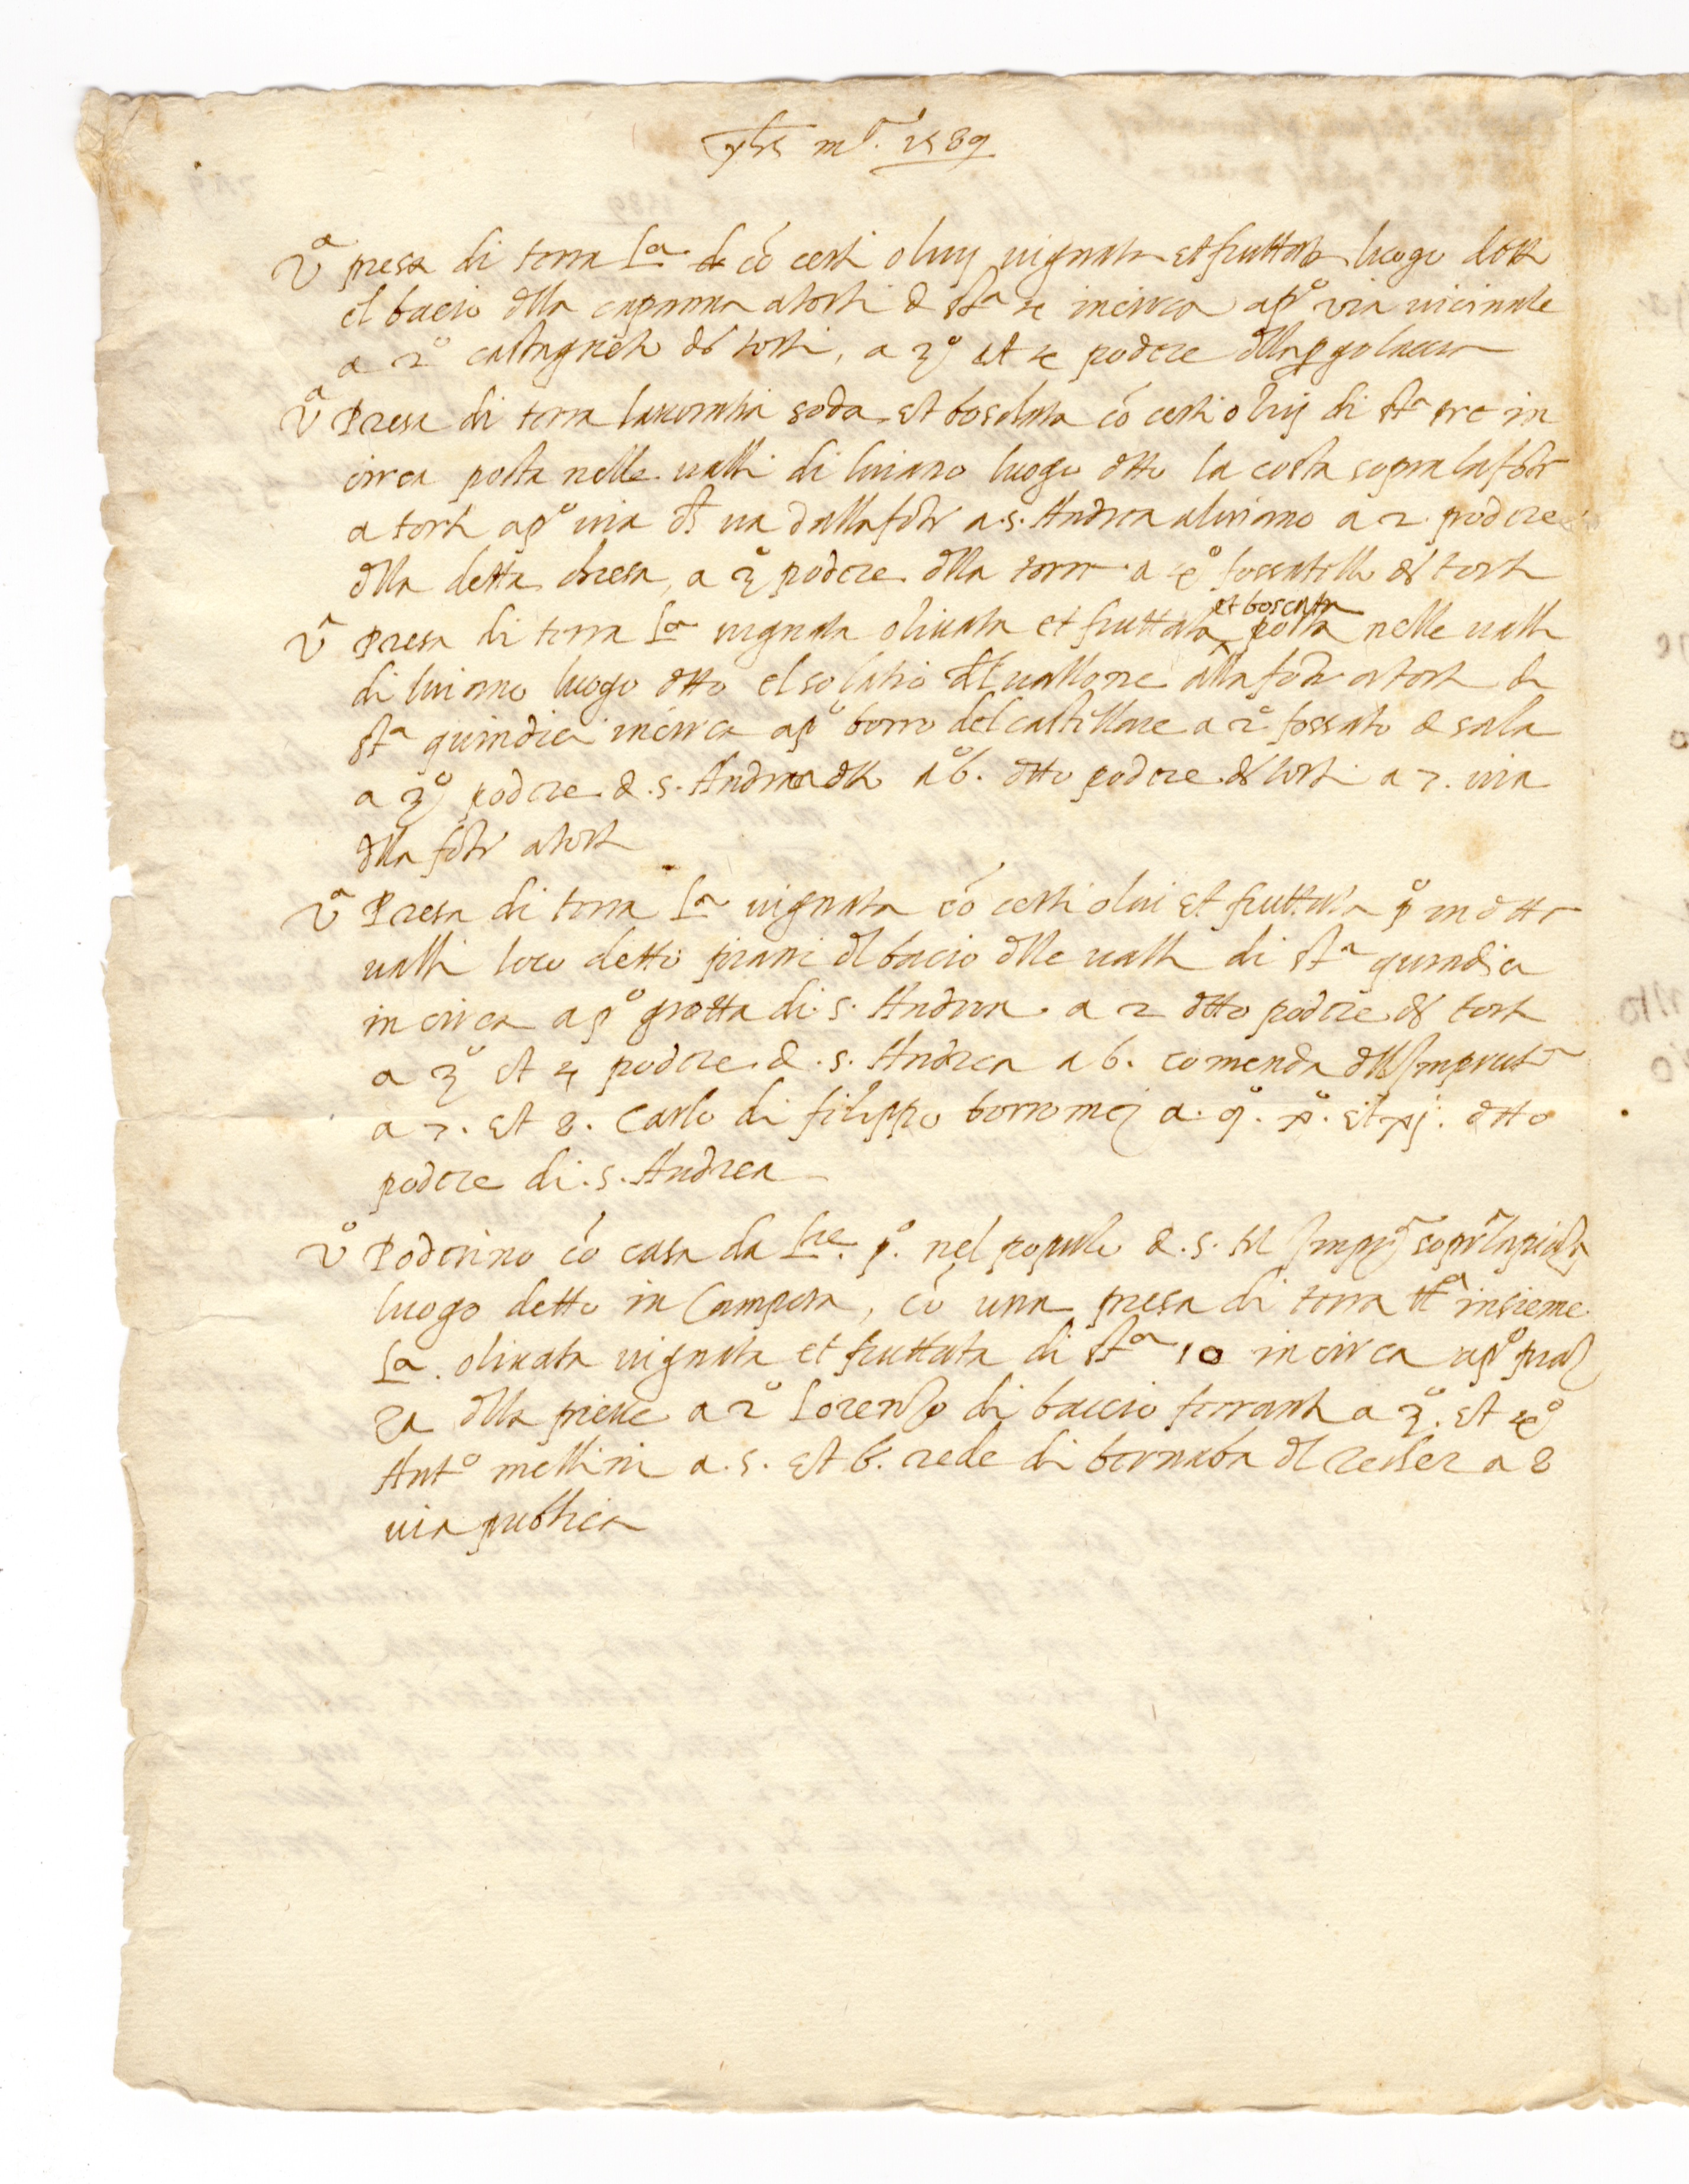 yhs mª. 1589
Vª presa di terra lª cō certi oliuj uignata et fruttata luogo detto
el bacio dlla capanna a torti d stª 4 in circa apº via uicinale
a 2º castagneto d torti, a 3º et 4 podere dlla
Vª Presa di terra lauoratia soda et boschata cō certi oliuj di stª tre in
circa posta nelle ualli di luiano luogo dtto la costa sopra la
a torti apº uia ch ua dalla a. s. Andrea a luiano a 2. podere
dlla detta chiesa, a 3º podere dlla torre a 4º fossatello d torti
Vª Presa di terra lª uignata oliuata et fruttata et boscata posta nelle ualli
di luiano luogo dtto el solatio dl uallone alla a torti di
stª quindici in circa apº borro del castellare a 2º fossato d sala
a 3º podere d. s. Andrea a 6. dtto podere d torti a 7. uia
dlla a torti
Vª Presa di terra lª uignata cō certi oliui et fruttata pº in dtte
ualli loco detto piani dl bacio dlle ualli di stª quindici
in circa apº grotta di. s. Andrea. a 2 dtto podere d torti
a 3º et 4 podere d. s. Andrea a 6. comenda dll Imprunta
a 7. et 8. Carlo di filippo borromej a. 9º. xº. et xj. dtto
podere di. s. Andrea
Vº Poderino cō casa da lre. pº. nel populo d. s. M Impª sopª la piaza
luogo detto in Campora, cō una presa di terra ttª insieme
lª. oliuata uignata et fruttata di stª 10 in circa apº piaz
za dlla pieue a 2º Lorenzo di baccio ferranti a 3º. et 4º
Antº mellini a. 5. et 6. rede di bernaba dl a 8
uia publica